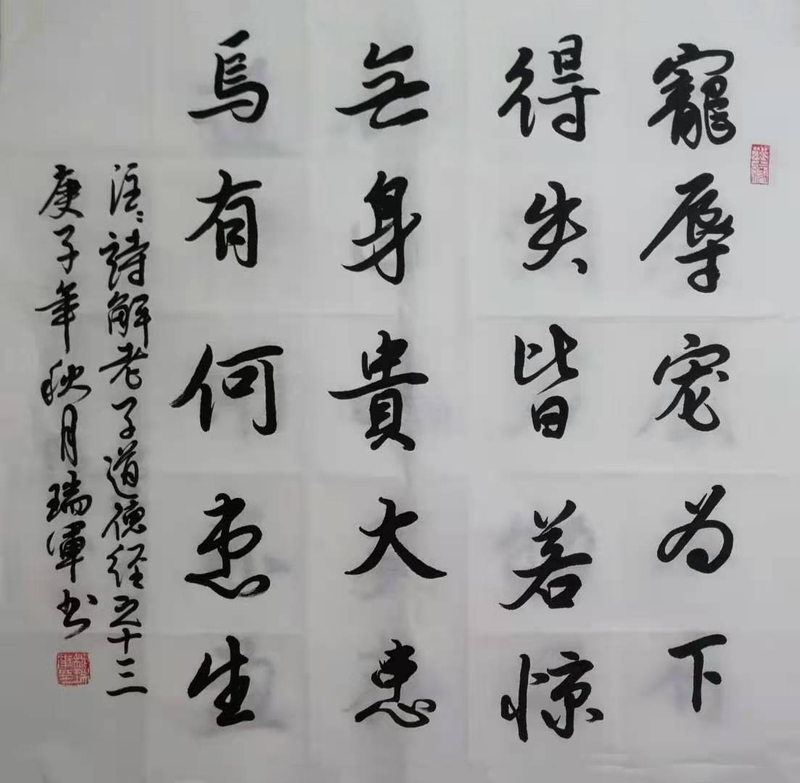 寵辱宠为下
得失皆若惊
無身貴大患
焉有何患生
注：詩解老子道德经之十三
庚子年秋月瑞軍书